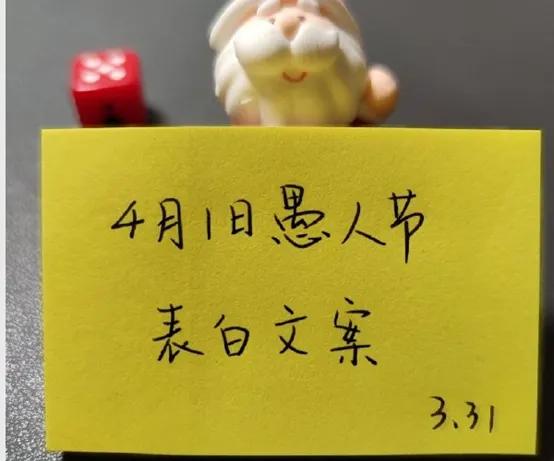 4月1日愚人节
表白文案
3.31